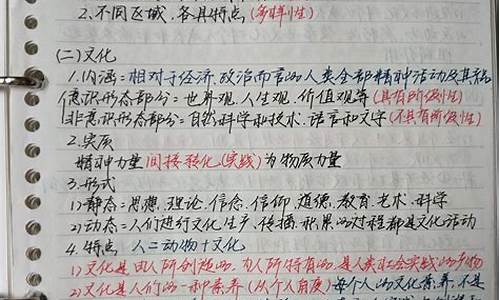 2.不同区域,各具特点(多样性)
(二)文化
1.内涵:相对于经济、政治而言的人类全部精神活动及其产品
意识形态部分:世界观、人生观、价值观等(具有阶级性)
非意识形态部分:自然科学和技术、语言和文字(不具有阶级性)
2.实质
精神力量间接转化(实践)为物质力量
3.形式
1)静态:思想、理论、信念、信仰、道德、教育、艺术、科学
2)动态:人们进行文化生产、传播、积累的过程都是文化活动
4.特点 人=动物+文化
1)文化是由人所创造的,为人所特有的,是人类社会实践的产物
2)文化是人们的一种素养(从个人角度)每个人的文化素养,不是